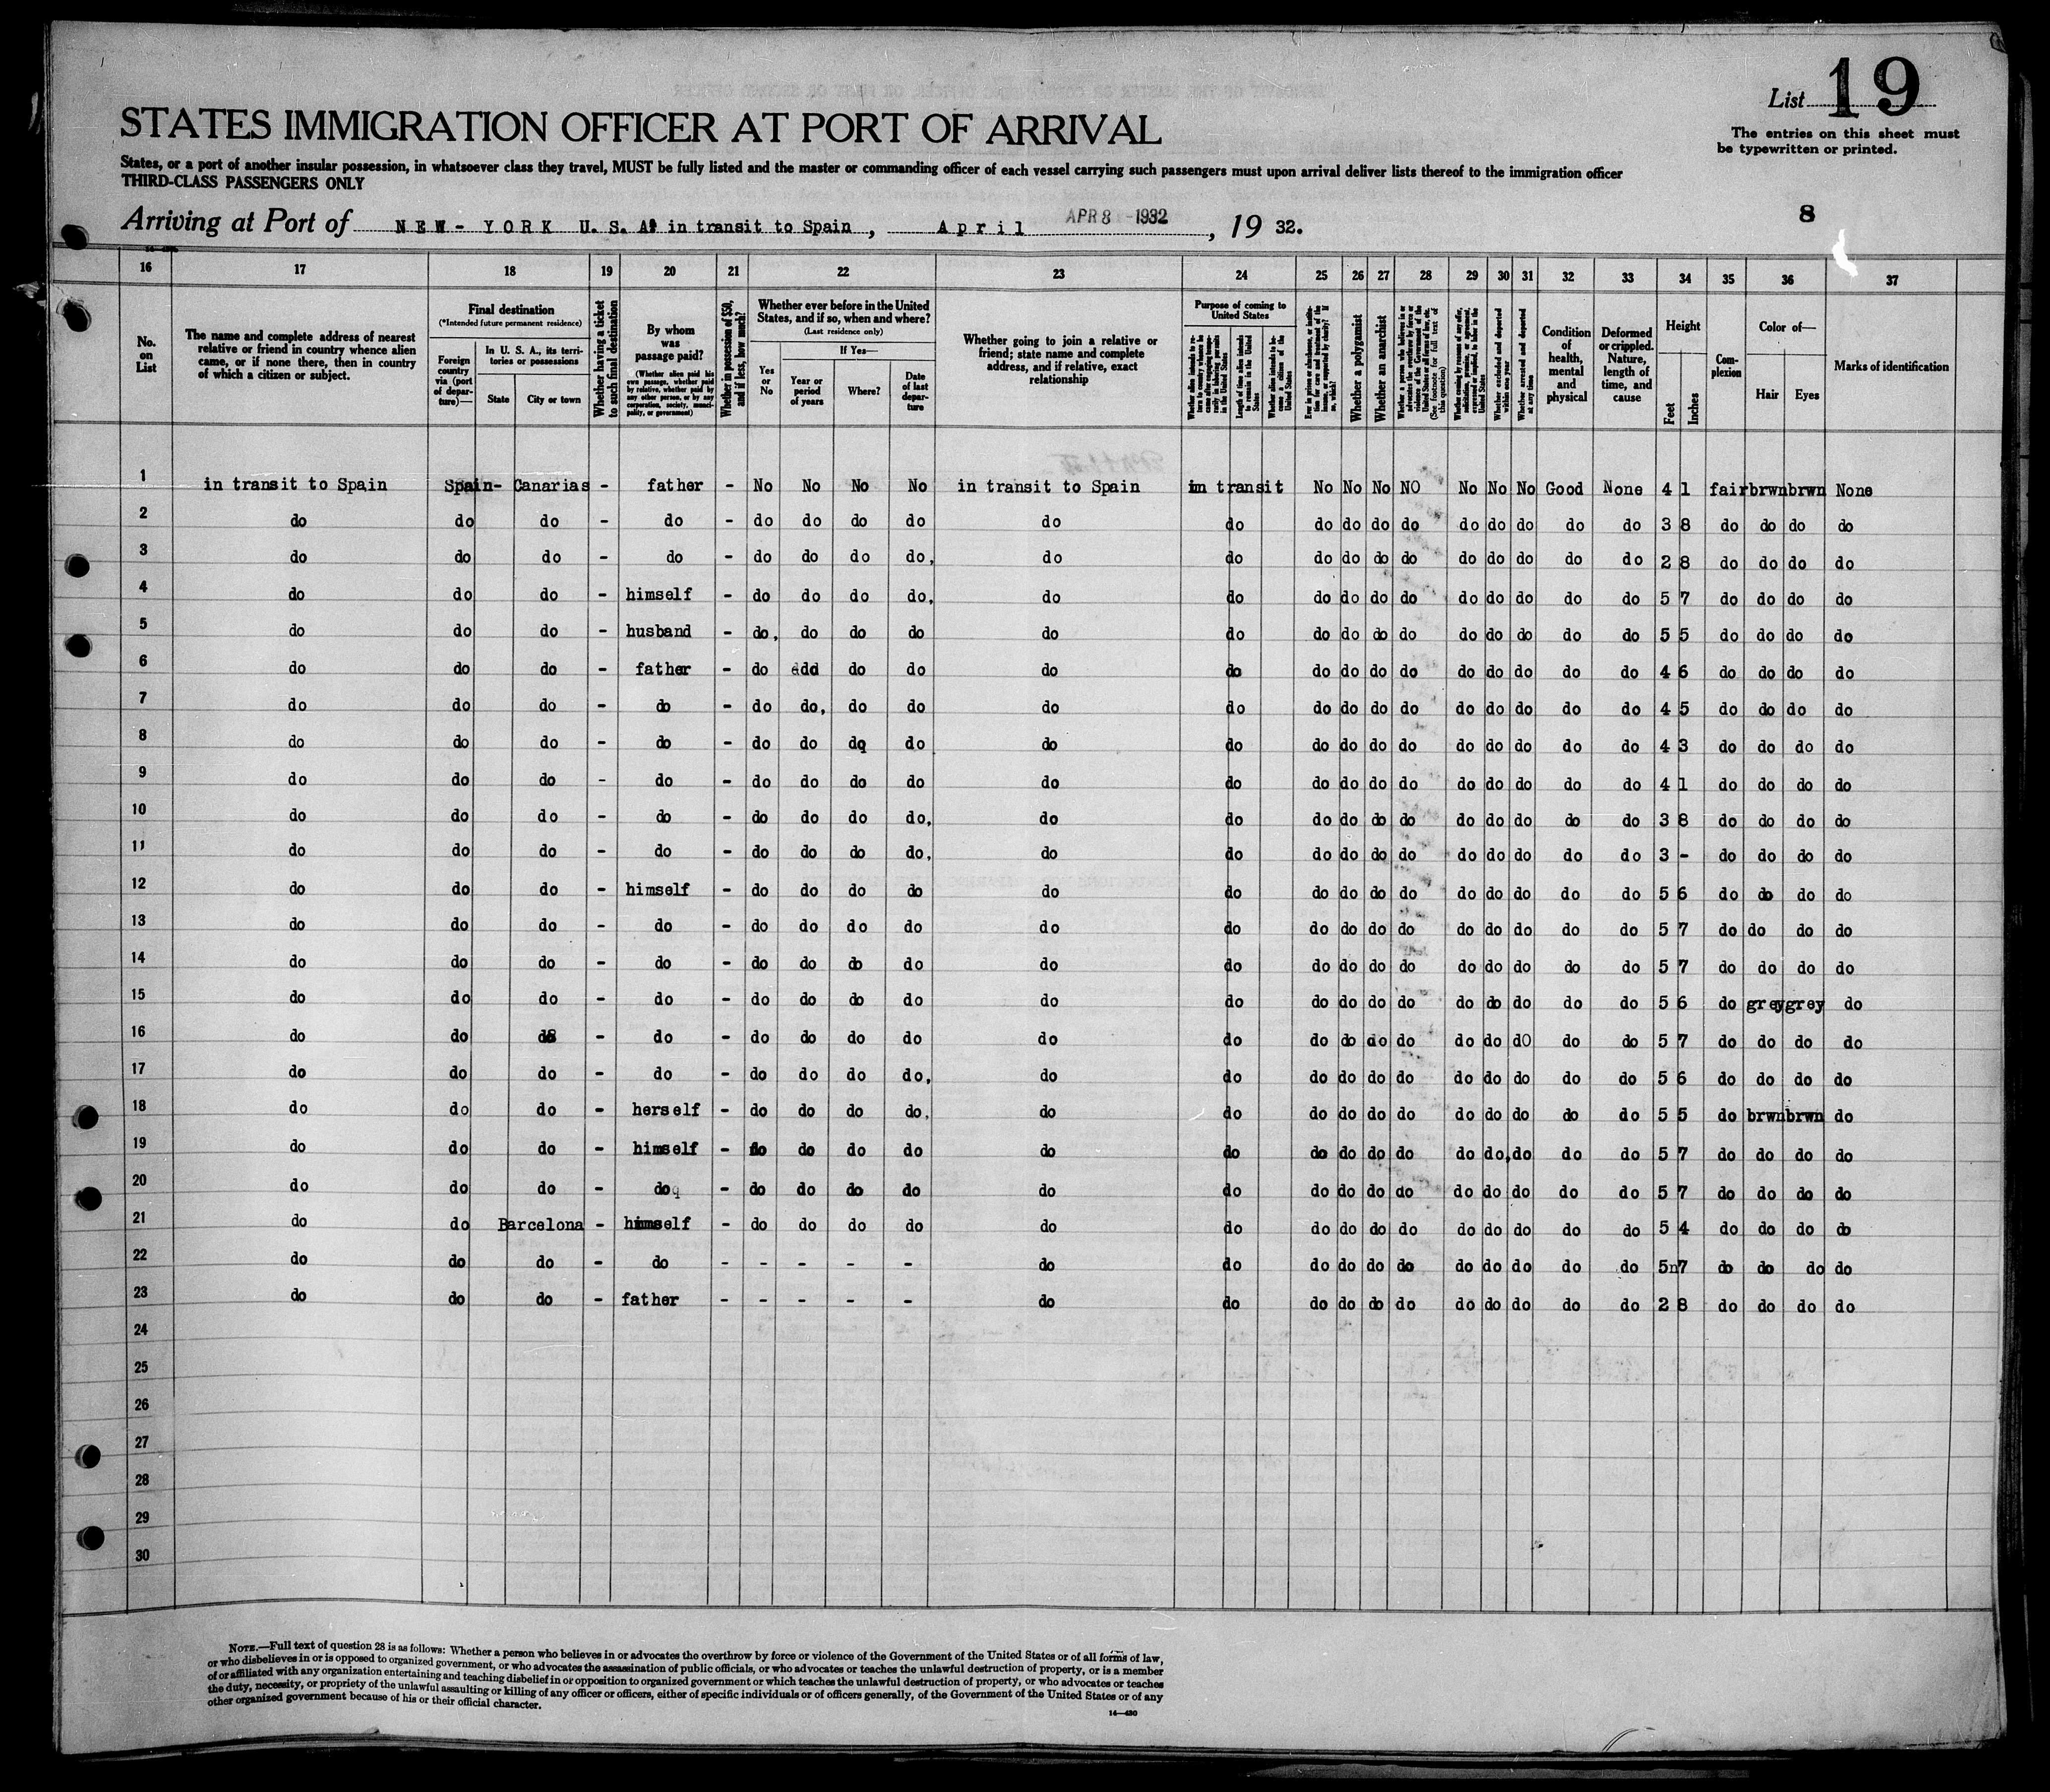 List 19
STATES IMMIGRATION OFFICER AT PORT OF ARRIVAL
The entries on this sheet must
be typewritten or printed.
States, or a port of another insular possession, in whatsoever class they travel, MUST be fully listed and the master or commanding officer of each vessel carrying such passengers must upon arrival deliver lists thereof to the immigration officer
THIRD-CLASS PASSENGERS ONLY
8
Arriving at Port of NEW-YORK U. S. A. in transit to Spain, April APR 8 - 1932, 19 32.
16 17 18 19 20 21 22 23 24 25 26 27 28 29 30 31 32 33 34 35 36 37
No. on List
The name and complete address of nearest relative or friend in country whence alien came, or if none there, then in country of which a citizen or subject.
Final destination
(*Intended future permanent residence)
Foreign country via (port of departure)—
In U. S. A., its territories or possessions
State
City or town
Whether having a ticket to such final destination
By whom was passage paid?
(Whether alien paid his own passage, whether paid by relative, whether paid by any other person, or by any corporation, society, municipality, or government)
Whether in possession of $50, and if less, how much?
Whether ever before in the United States, and if so, when and where?
(Last residence only)
Yes or No
If Yes—
Year or period of years
Where?
Date of last departure
Whether going to join a relative or friend; state name and complete address, and if relative, exact relationship
Purpose of coming to United States
Length of time alien intends to remain in the United States
Whether alien intends to become a citizen of the United States
Whether a polygamist
Whether an anarchist
(See footnote for full text of this question)
Whether excluded and deported within one year
Whether arrested and deported at any time
Condition of health, mental and physical
Deformed or crippled. Nature, length of time, and cause
Height
Feet
Inches
Complexion
Color of—
Hair
Eyes
Marks of identification
1 in transit to Spain Spain- Canarias - father - No No No No in transit to Spain in transit No No No NO No No No Good None 4 1 fair brwn brwn None
2 do do do - do - do do do do do do do do do do do do do do do 3 8 do do do do
3 do do do - do - do do do do, do do do do do do do do do do do 2 8 do do do do
4 do do do - himself - do do do do, do do do do do do do do do do do 5 7 do do do do
5 do do do - husband - do, do do do do do do do do do do do do do do 5 5 do do do do
6 do do do - father - do ddd do do do do do do do do do do do do do 4 6 do do do do
7 do do do - do - do do, do do do do do do do do do do do do do 4 5 do do do do
8 do do do - do - do do dq do do do do do do do do do do do do 4 3 do do do do
9 do do do - do - do do do do do do do do do do do do do do do 4 1 do do do do
10 do do do - do - do do do do, do do do do do do do do do do do 3 8 do do do do
11 do do do - do - do do do do, do do do do do do do do do do do 3 - do do do do
12 do do do - himself - do do do do do do do do do do do do do do do 5 6 do do do do
13 do do do - do - do do do do do do do do do do do do do do do 5 7 do do do do
14 do do do - do - do do do do do do do do do do do do do do do 5 7 do do do do
15 do do do - do - do do do do do do do do do do do do do do do 5 6 do grey grey do
16 do do do - do - do do do do do do do do do do do do dO do do 5 7 do do do do
17 do do do - do - do do do do, do do do do do do do do do do do 5 6 do do do do
18 do do do - herself - do do do do, do do do do do do do do do do do 5 5 do brwn brwn do
19 do do do - himself - do do do do do do do do do do do do, do do do 5 7 do do do do
20 do do do - doq - do do do do do do do do do do do do do do do 5 7 do do do do
21 do do Barcelona - himself - do do do do do do do do do do do do do do do 5 4 do do do do
22 do do do - do - - - - - do do do do do do do do do do do 5n7 do do do do
23 do do do - father - - - - - do do do do do do do do do do do 2 8 do do do do
24
25
26
27
28
29
30
NOTE.—Full text of question 28 is as follows: Whether a person who believes in or advocates the overthrow by force or violence of the Government of the United States or of all forms of law,
or who disbelieves in or is opposed to organized government, or who advocates the assassination of public officials, or who advocates or teaches the unlawful destruction of property, or is a member
of or affiliated with any organization entertaining and teaching disbelief in or opposition to organized government or which teaches the unlawful destruction of property, or who advocates or teaches
the duty, necessity, or propriety of the unlawful assaulting or killing of any officer or officers, either of specific individuals or of officers generally, of the Government of the United States or of any
other organized government because of his or their official character.
14—430